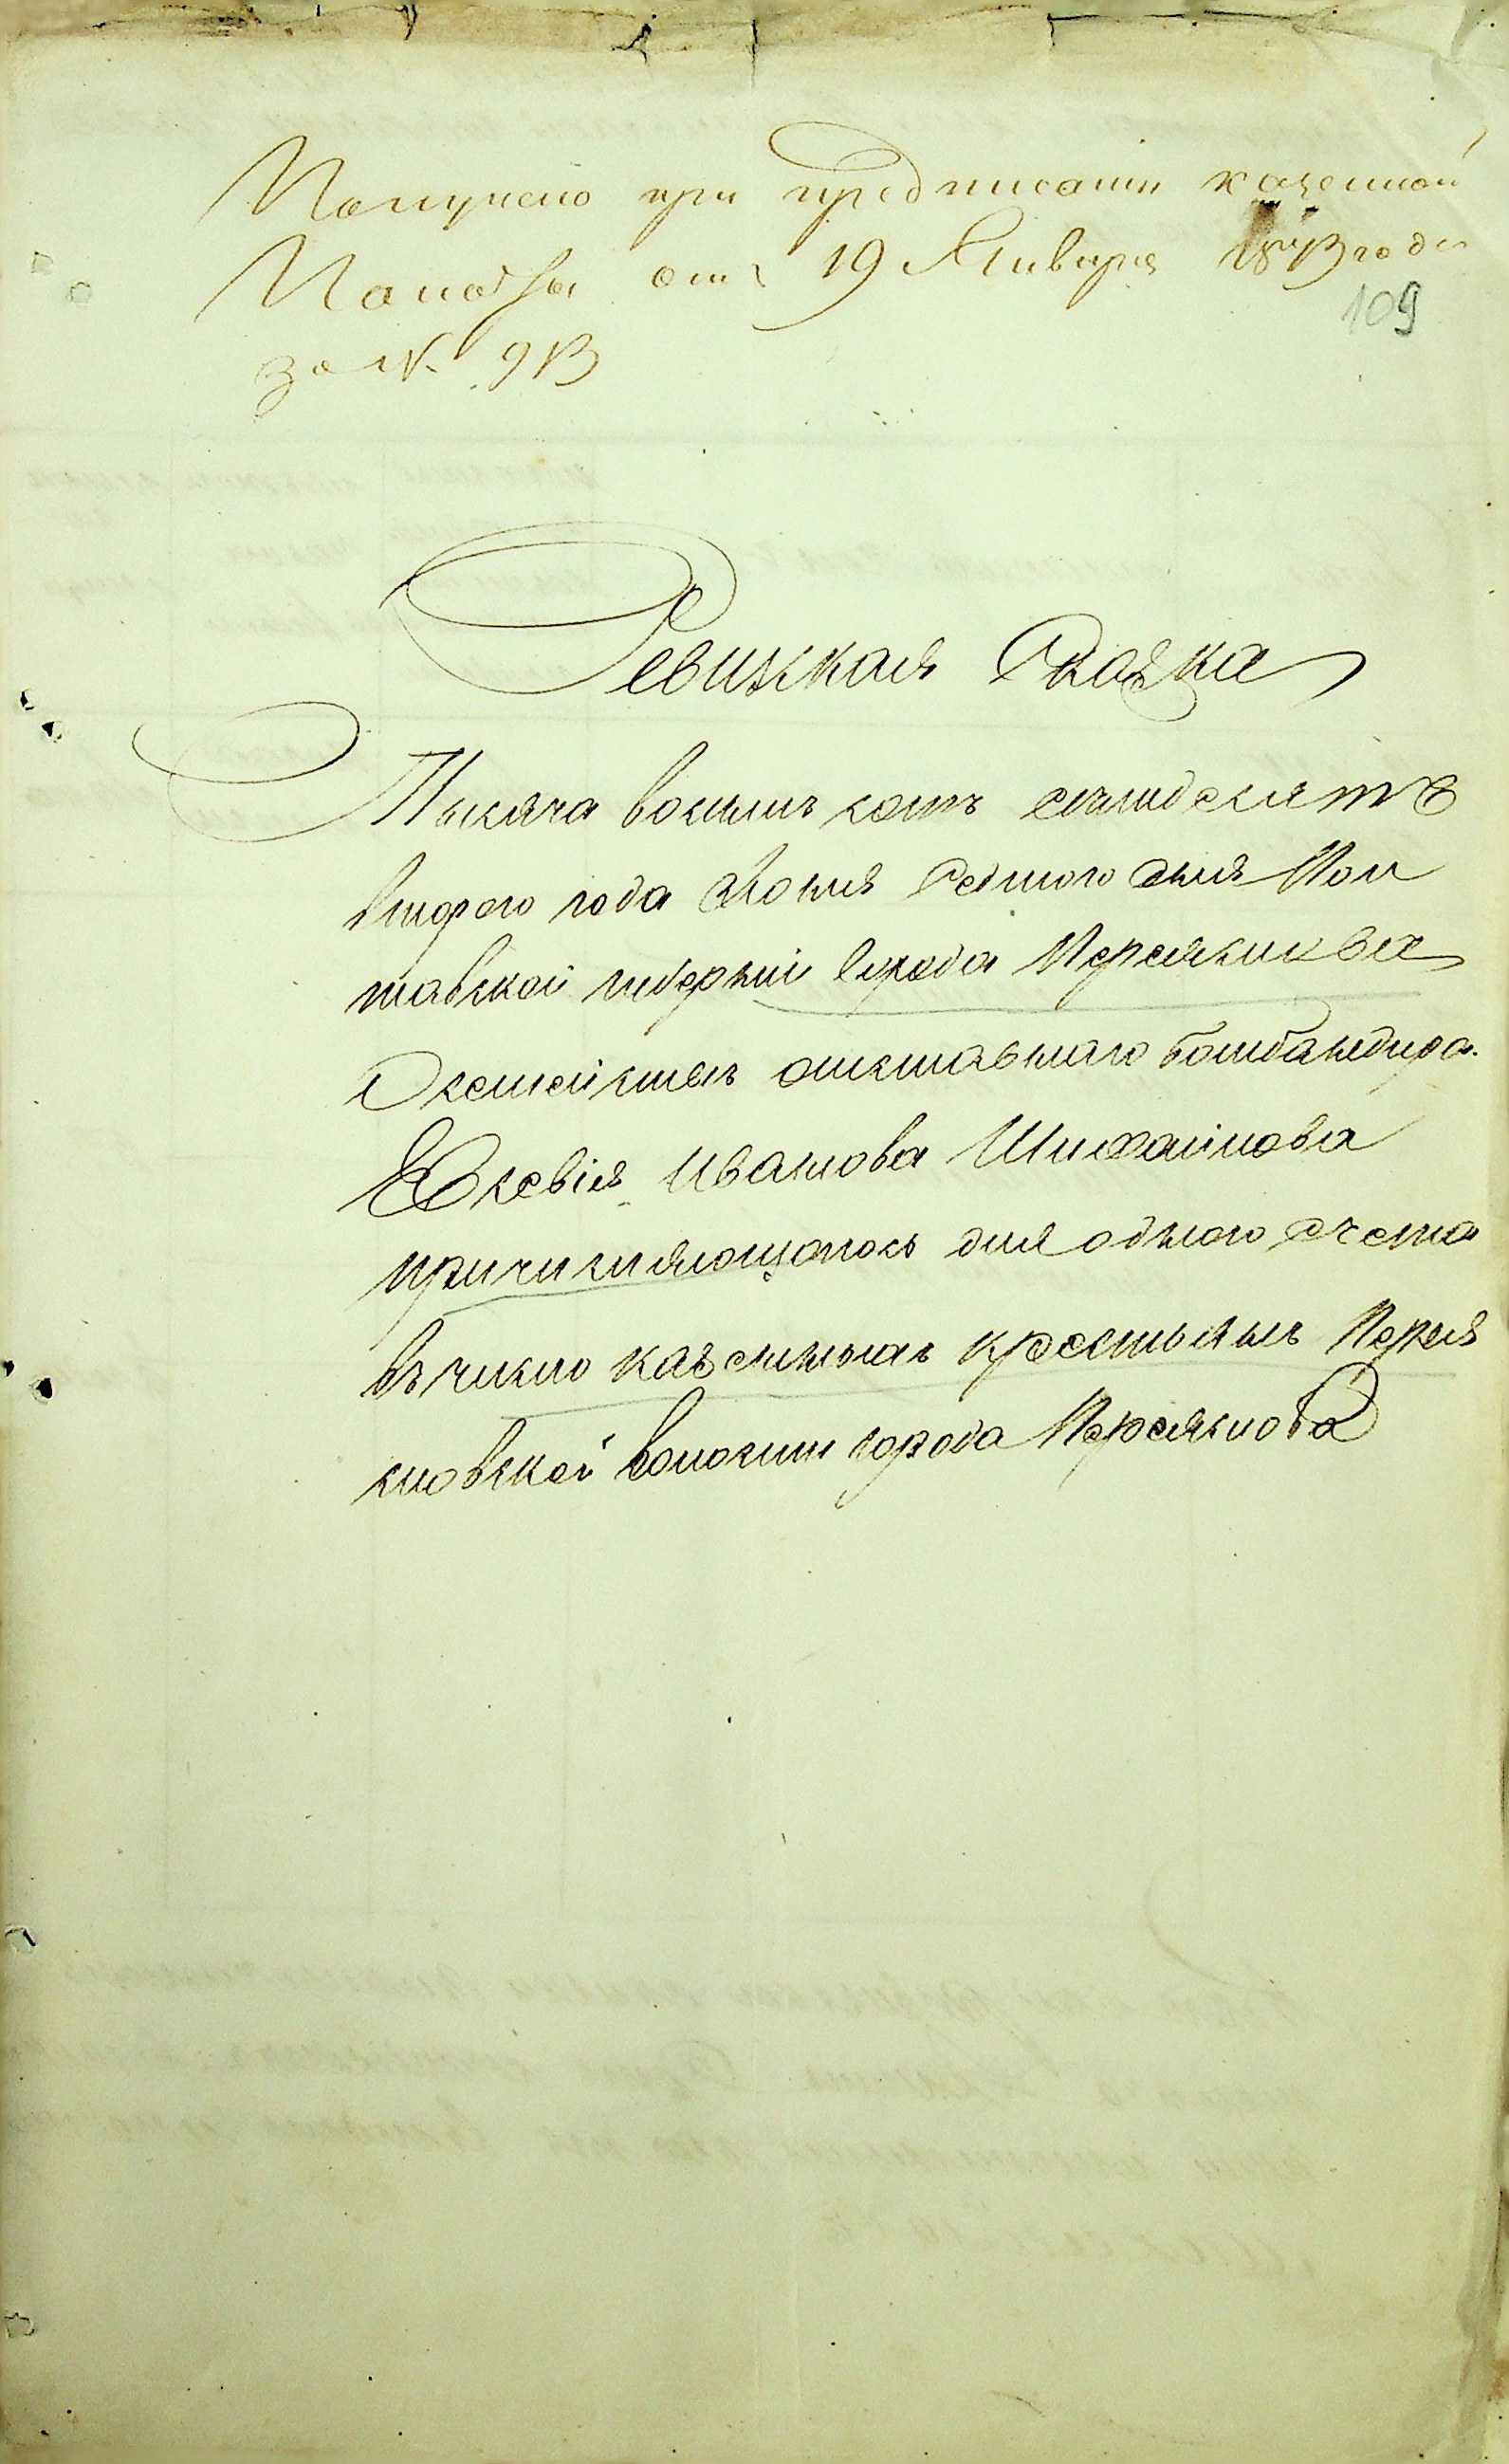 Получено при предписании казенной
Палаты отъ 19 Января 1873 года
за № 913
109
Ревизская Сказка
Тысяча восемь сотъ семьдесятъ
втораго года Іюня седмого дня Пол
тавской губерніи города Переяслава
О семействѣ отставнаго бомбандира
Евсевія Иванова
причисляющагося для одного счета
въ число казенныхъ крестьянъ Перея
словской волости города Переяслова